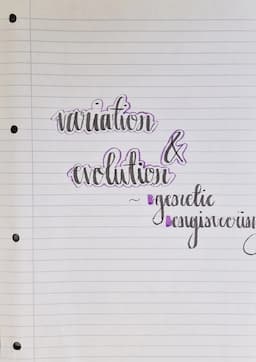 variation
&
evolution
~ genetic
engineering